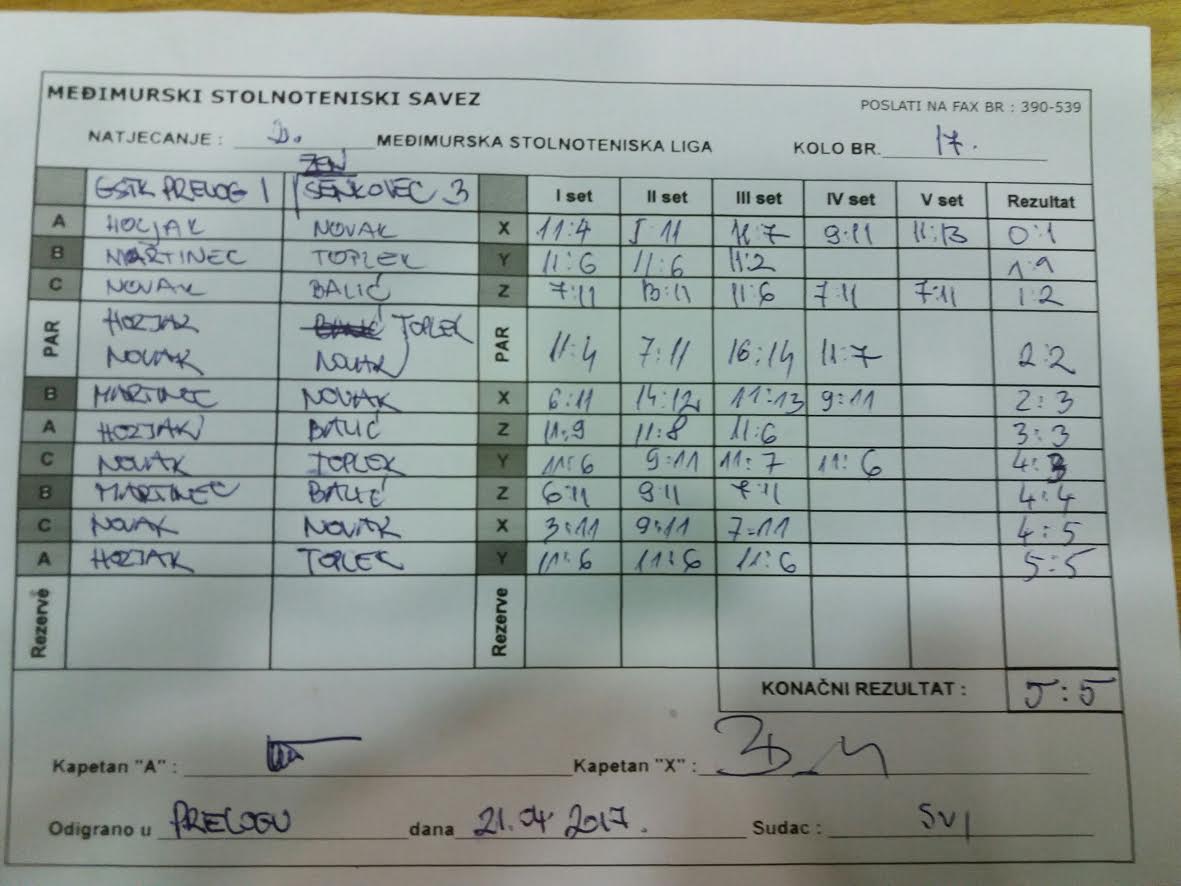 MEĐIMURSKI STOLNOTENISKI SAVEZ
POSLATI NA FAX BR : 390-539
NATJECANJE : MEĐIMURSKA STOLNOTENISKA LIGA KOLO BR. 17.
ŽEN
GSTK PRELOG 1 SENKOVEC 3 I set II set III set IV set V set Rezultat
A HOZJAK NOVAK X 11:4 5:11 11:7 9:11 11:13 0:1
B MARTINEC TOPLEK Y 11:6 11:6 11:2 1:1
C NOVAK BALIĆ Z 7:11 13:11 11:6 7:11 7:11 1:2
PAR HOZJAK TOPLEK PAR
NOVAK NOVAK 11:4 7:11 16:14 11:7 2:2
B MARTINEC NOVAK X 6:11 14:12 11:13 9:11 2:3
A HOZJAK BALIĆ Z 11:9 11:8 11:6 3:3
C NOVAK TOPLEK Y 11:6 9:11 11:7 11:6 4:3
B MARTINEC BALIĆ Z 6:11 9:11 7:11 4:4
C NOVAK NOVAK X 3:11 9:11 7:11 4:5
A HOZJAK TOPLEK Y 11:6 11:6 11:6 5:5
Rezerve Rezerve
KONAČNI REZULTAT : 5:5
Kapetan "A" : Kapetan "X" :
Odigrano u PRELOGU dana 21.04 2017. Sudac : SVI